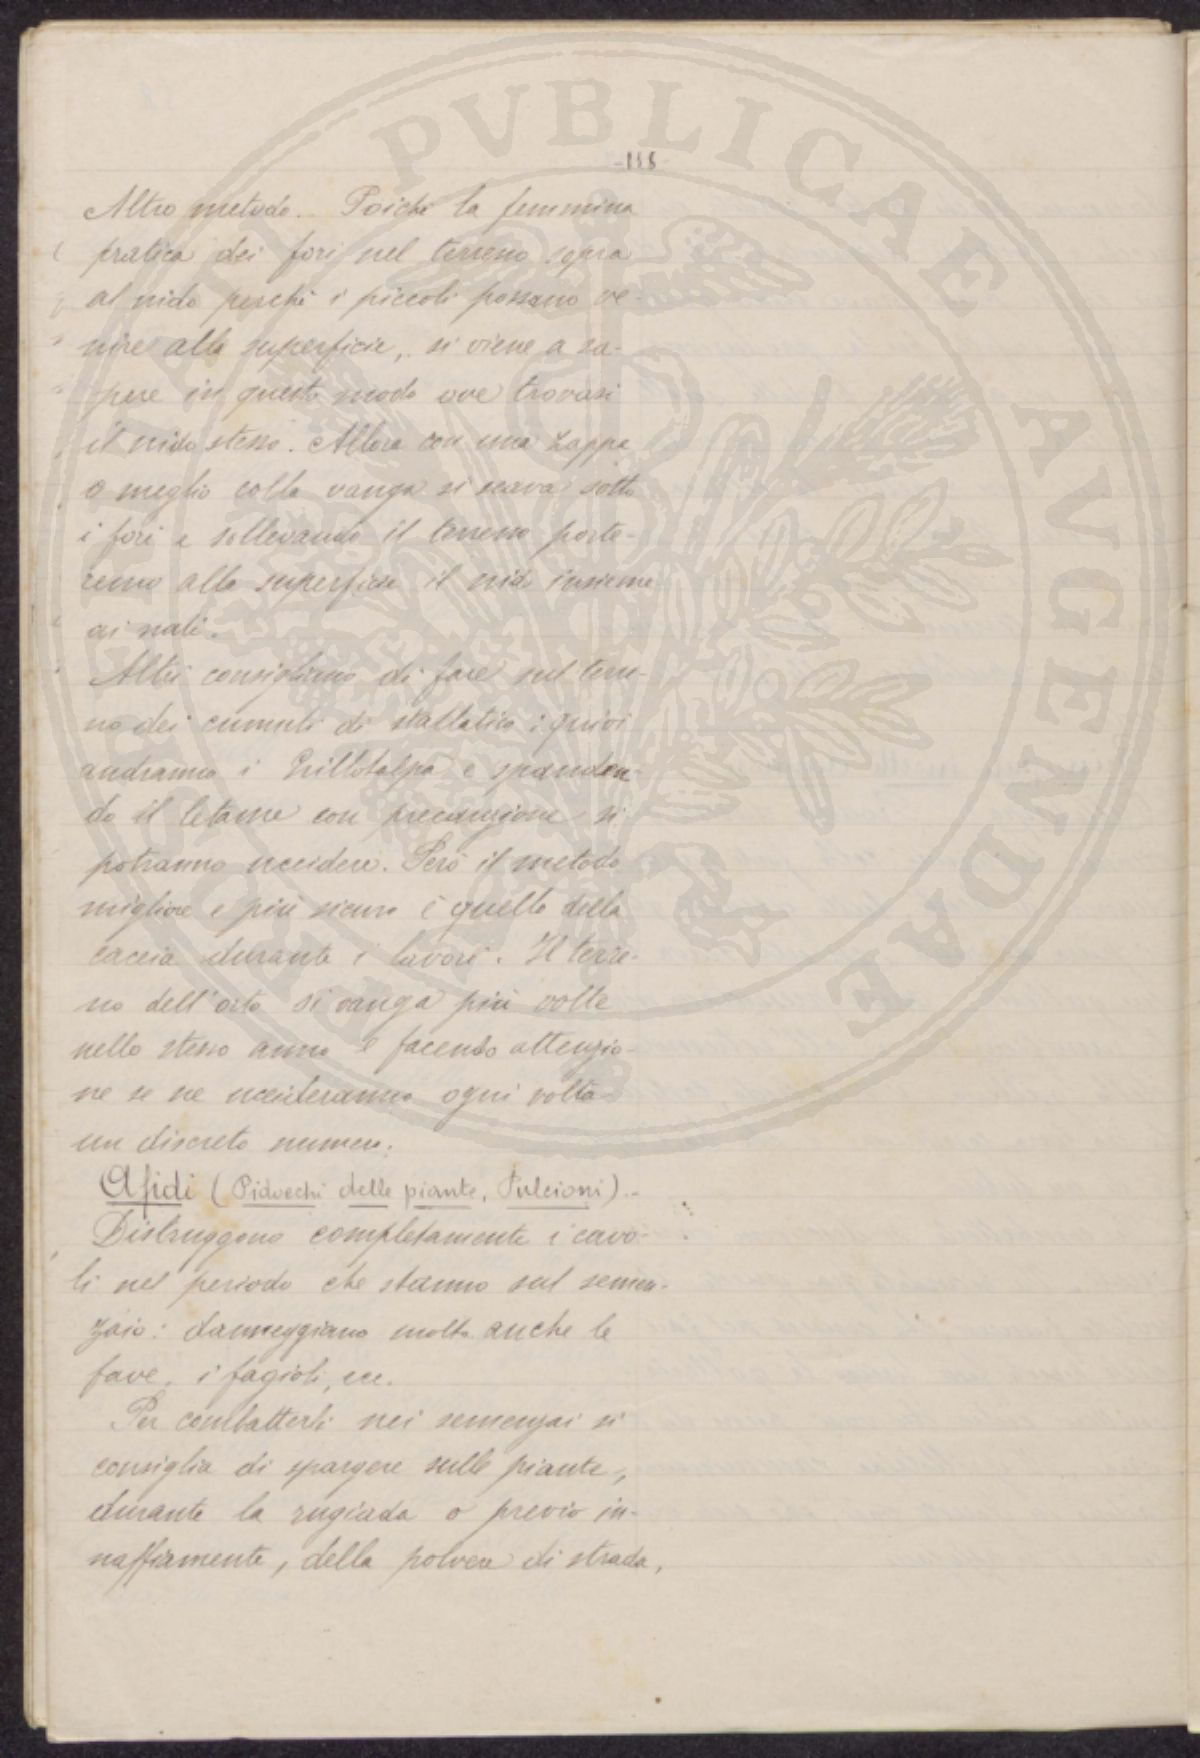 -188-
Altro metodo. Poichè la femmina
pratica dei fori nel terreno sopra
al nido perchè i piccoli possano ve-
nire alla superficie, si viene a sa-
pere in questo modo ove trovasi
il nido stesso. Allora con una zappa
o meglio colla vanga si scava sotto
i fori e sollevando il terreno porte-
remo alla superficie il nido insieme
ai nati.
Altri consigliano di fare sul terre-
no dei cumuli di stallatico: quivi
andranno i Grillotalpa e spanden-
do il letame con precauzione si
potranno uccidere. Però il metodo
migliore e più sicuro è quello della
caccia durante i lavori. Il terre-
no dell'orto si vanga più volte
nello stesso anno e facendo attenzio-
ne se ne uccideranno ogni volta
un discreto numero.
Afidi (Pidocchi delle piante, Pulcioni).-
Distruggono completamente i cavo-
li nel periodo che stanno sul semen-
zaio: danneggiano molto anche le
fave, i fagioli, ecc.
Per combatterli nei semenzai si
consiglia di spargere sulle piante,
durante la rugiada o previo in-
naffiamento, della polvere di strada,
PVBLICAE AVGENDAE